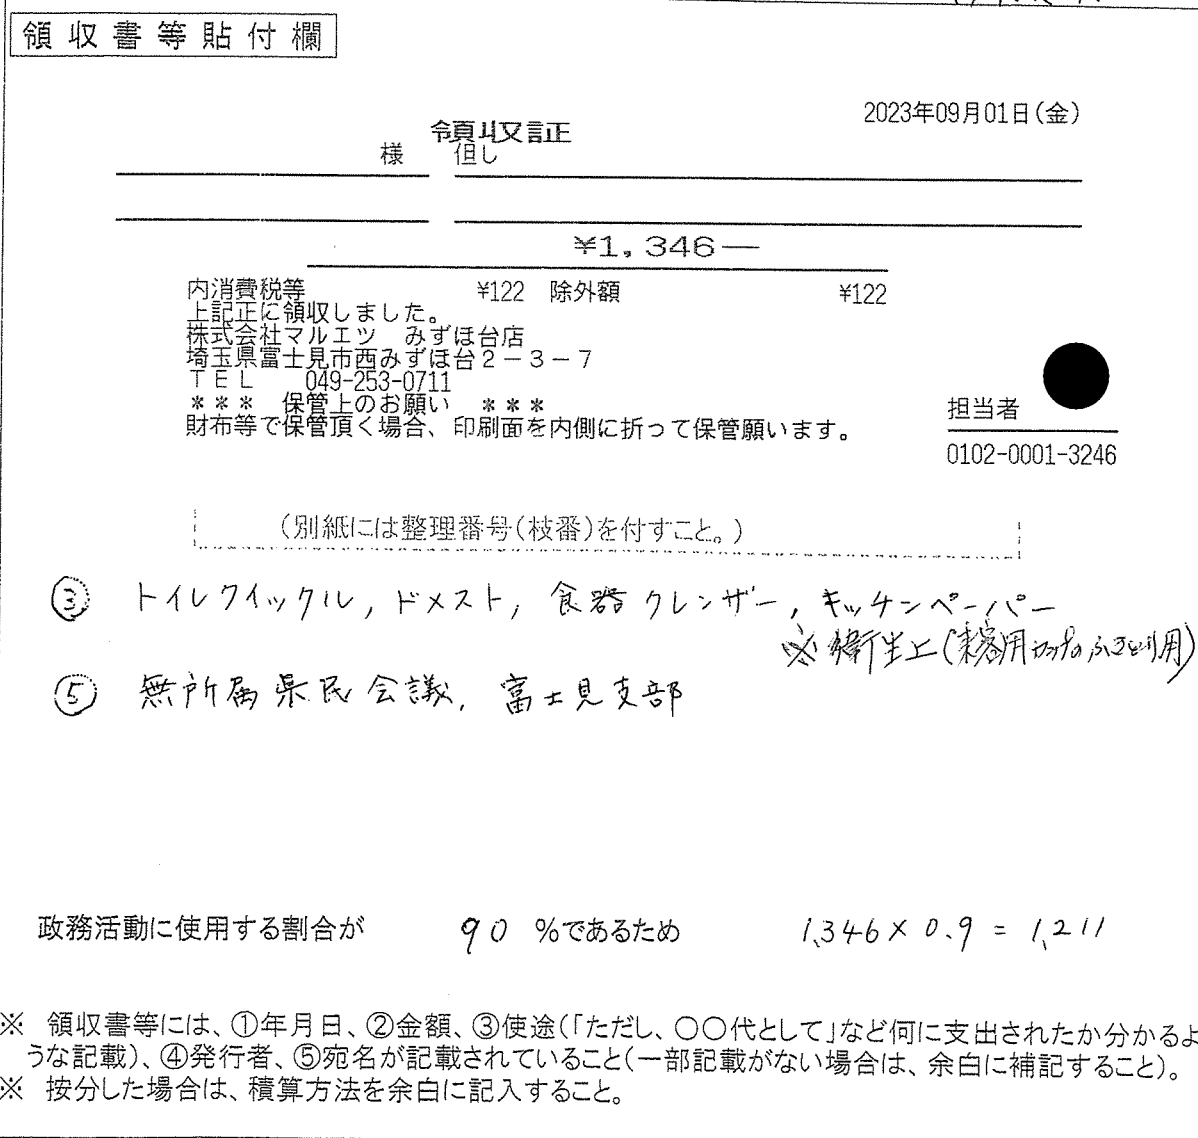 領収書等貼付欄
2023年09月01日(金)
領収証
様 但し
¥1,346―
内消費税等 ¥122 除外額 ¥122
上記正に領収しました。
株式会社マルエツ みずほ台店
埼玉県富士見市西みずほ台2-3-7
TEL 049-253-0711
*** 保管上のお願い ***
財布等で保管頂く場合、印刷面を内側に折って保管願います。
担当者
0102-0001-3246
(別紙には整理番号(枝番)を付すこと。)
③ トイレクイックル, ドメスト, 食器クレンザー, キッチンペーパー
※衛生上(来客用カップのふきとり用)
⑤ 無所属県民会議, 富士見支部
政務活動に使用する割合が 90 %であるため 1,346×0.9=1,211
※ 領収書等には、①年月日、②金額、③使途(「ただし、〇〇代として」など何に支出されたか分かるよ
うな記載)、④発行者、⑤宛名が記載されていること(一部記載がない場合は、余白に補記すること)。
※ 按分した場合は、積算方法を余白に記入すること。